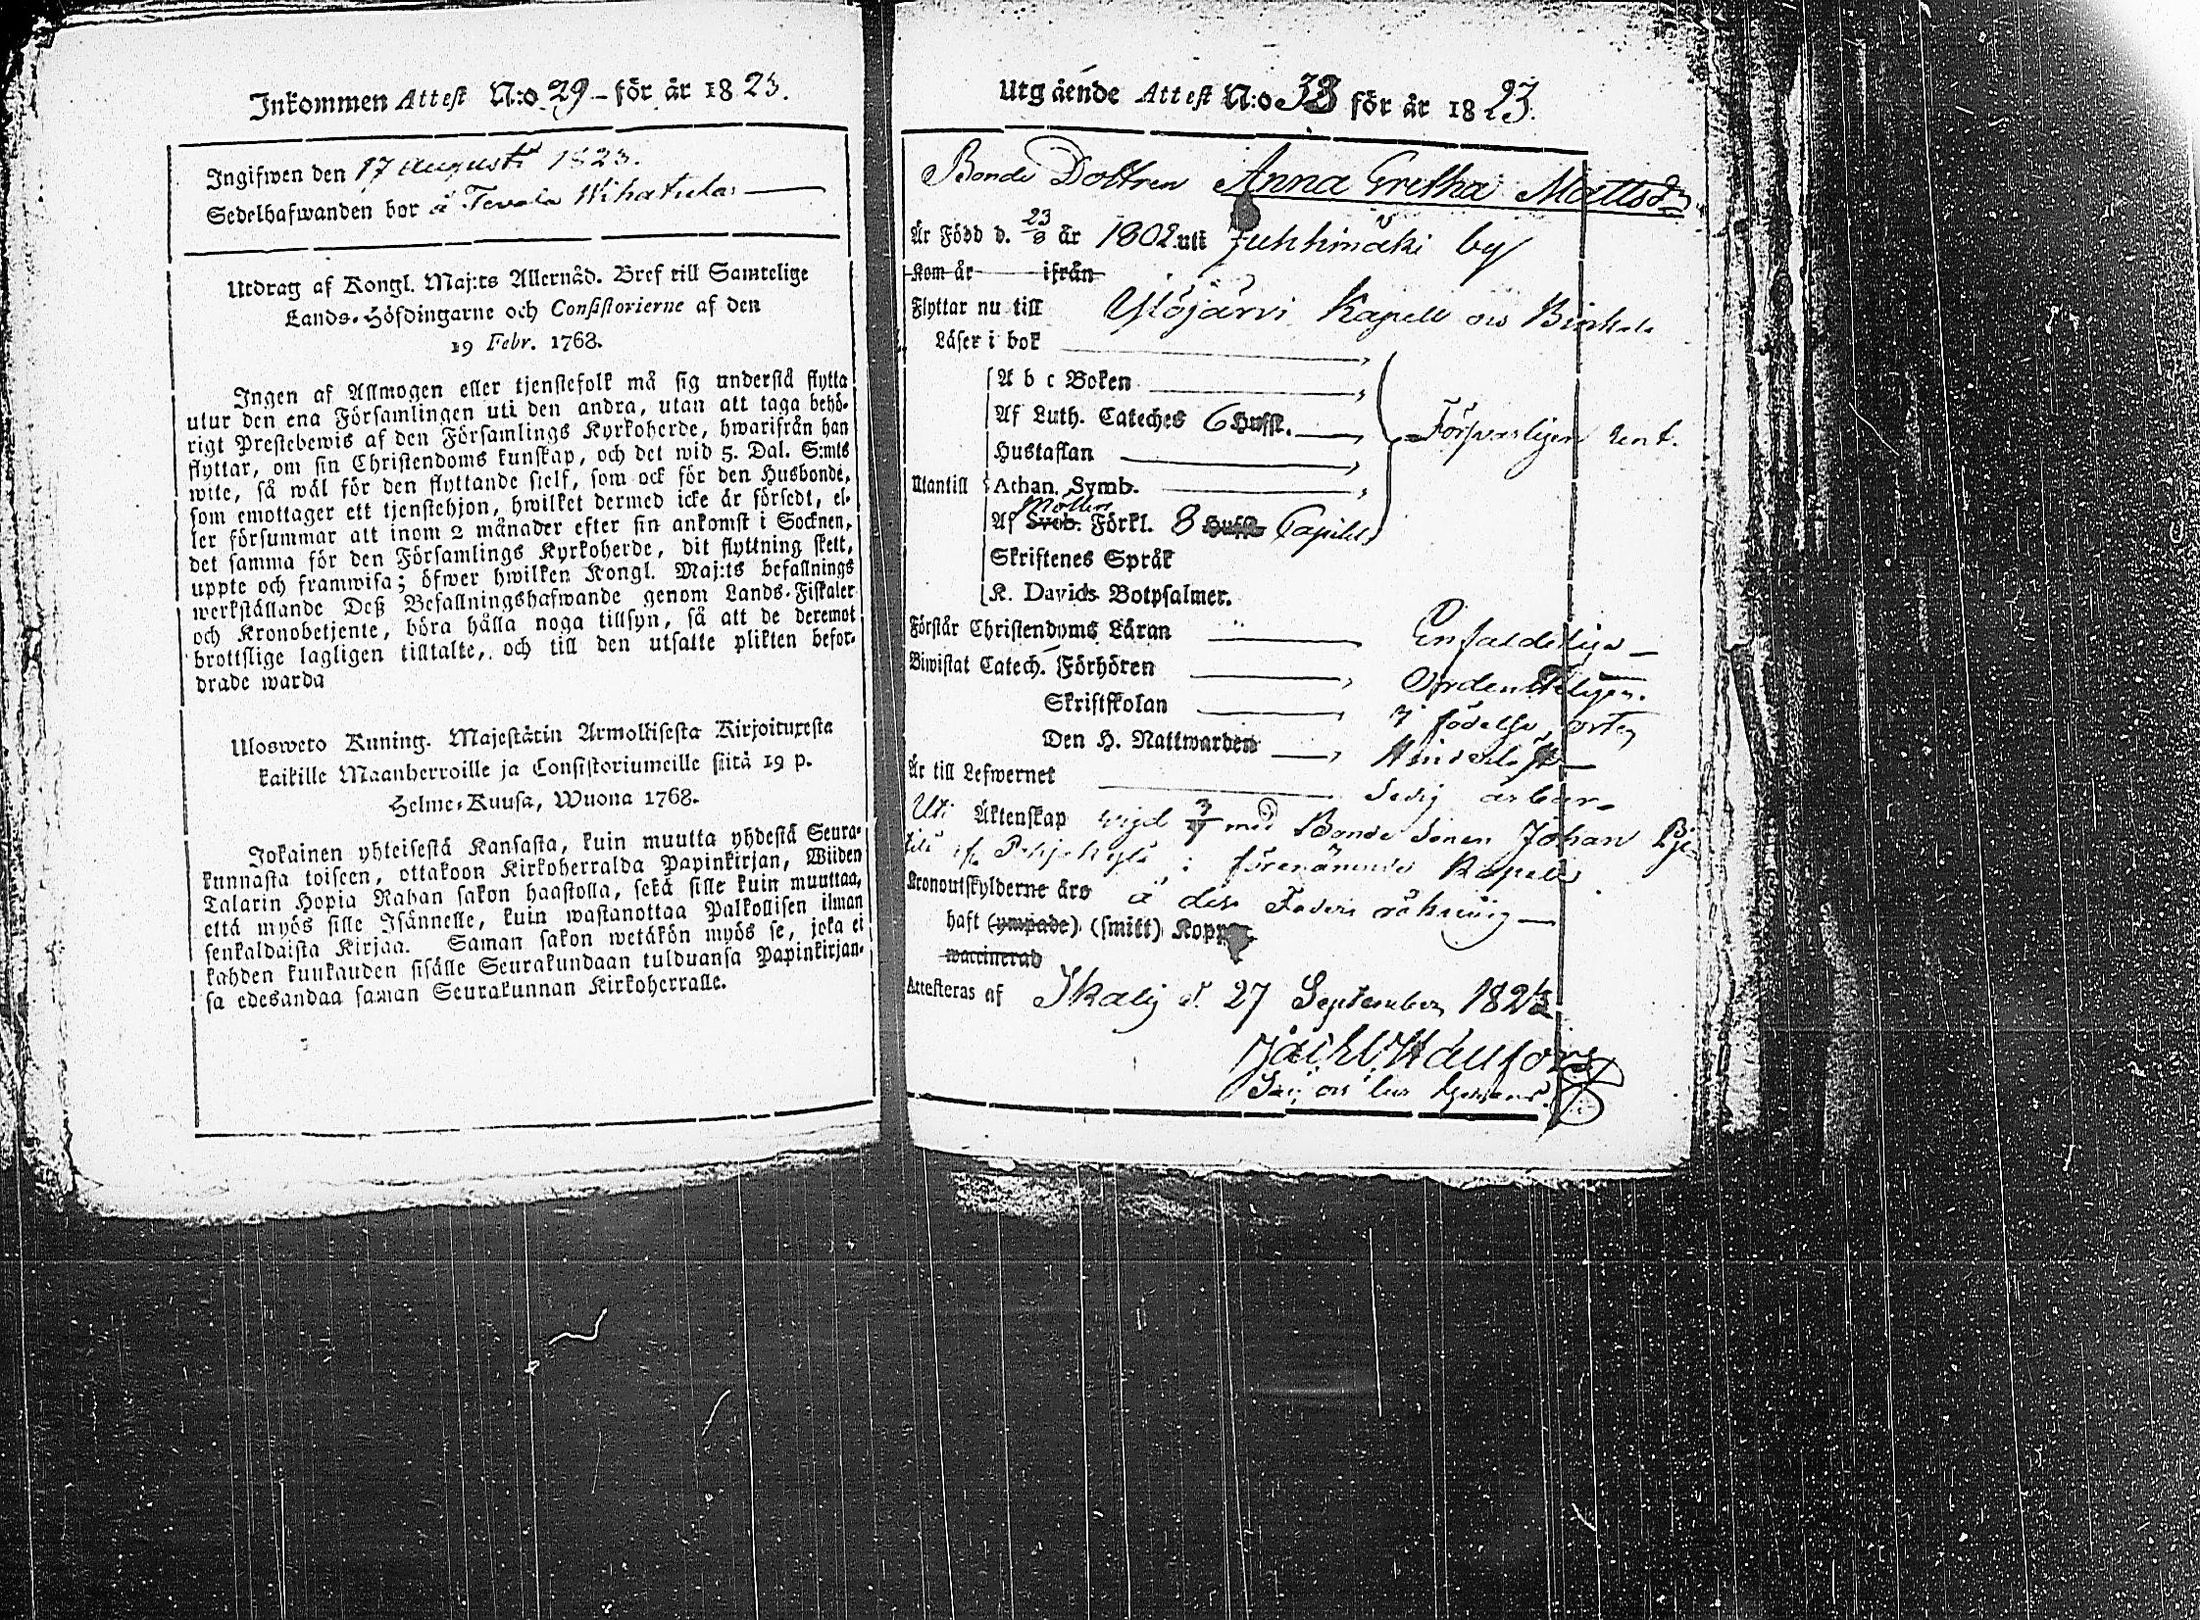 Inkommen Attest N:o 29 - för år 1823.
Ingifwen den 17 augusti 1823.
Sedelhafwanden bor å Tevala Wihatula
Utdrag af Kongl. Maj:ts Allernåd. Bref till Samtelige
Lands-Höfdingarne och Consistorierne af den
19 Febr. 1768.
Ingen af Allmogen eller tjenstefolk må sig understå flytta
utur den ena Församlingen uti den andra, utan att taga behö-
rigt Prestebewis af den Församlings Kyrkoherde, hwarifrån han
flyttar, om sin Christendoms kunskap, och det wid 5. Dal. S:mts
wite, så wäl för den flyttande sielf, som ock för den Husbonde,
som emottager ett tjenstehjon, hwilket dermed icke är försedt, el-
ler försummar att inom 2 månader efter sin ankomst i Socknen,
det samma för den Församlings Kyrkoherde, dit flyttning skett,
uppte och framwisa; öfwer hwilken Kongl. Maj:ts befallnings
werkställande Deß Befallningshafwande genom Lands-Fiskaler
och Kronobetjente, böra hålla noga tillsyn, så att de deremot
brottslige lagligen tilltalte, och till den utsatte plikten befor-
drade warda
Ulosweto Kuning. Majestätin Armollisesta Kirjoituxesta
kaikille Maanherroille ja Consistoriumeille siitä 19 p.
Helme-Kuusa, Wuona 1768.
Jokainen yhteisestä Kansasta, kuin muutta yhdestä Seura-
kunnasta toiseen, ottakoon Kirkoherralda Papinkirjan, Wiiden
Talarin Hopia Rahan sakon haastolla, sekä sille kuin muuttaa,
että myös sille Isännelle, kuin wastanottaa Palkollisen ilman
senkaldaista Kirjaa. Saman sakon wetäkön myös se, joka ei
kahden kuukauden sisälle Seurakundaan tulduansa Papinkirjaa-
sa edesandaa saman Seurakunnan Kirkoherralle.
Utgående Attest N:o 38 för år 1823.
Bonde Dottren Anna Gretha Mattsdr
Är Född d. 23/8 år 1802 uti Juhhimäki by
Kom år ifrån
Flyttar nu till Ylöjärvi Kapell Birkala
Läser i bok
A b c Boken
Af Luth. Cateches 6 Hufst.
Förswarligen
Hustaflan
Utantill Athan. Symb.
Möllers
Af Sveb. Förkl. 8 Hufst. Capitel
Skriftenes Språk
K. Davids Botpsalmer.
Förstår Christendoms Läran Enfaldeliga
Biwistat Catech. Förhören Ordenteligen.
Skriftskolan I födelse orten
Den H. Nattwarden Hinderlöst
Är till Lefwernet Ledig ärbar
Uti Äktenskap wigd med Bonde Sonen Johan
förenämnde Kapell
Kronoutskylderne äro å dess Faders räkning
haft (ympade) (smitt) Koppor
waccinerad
Attesteras af Ikalis d. 27 September 1823